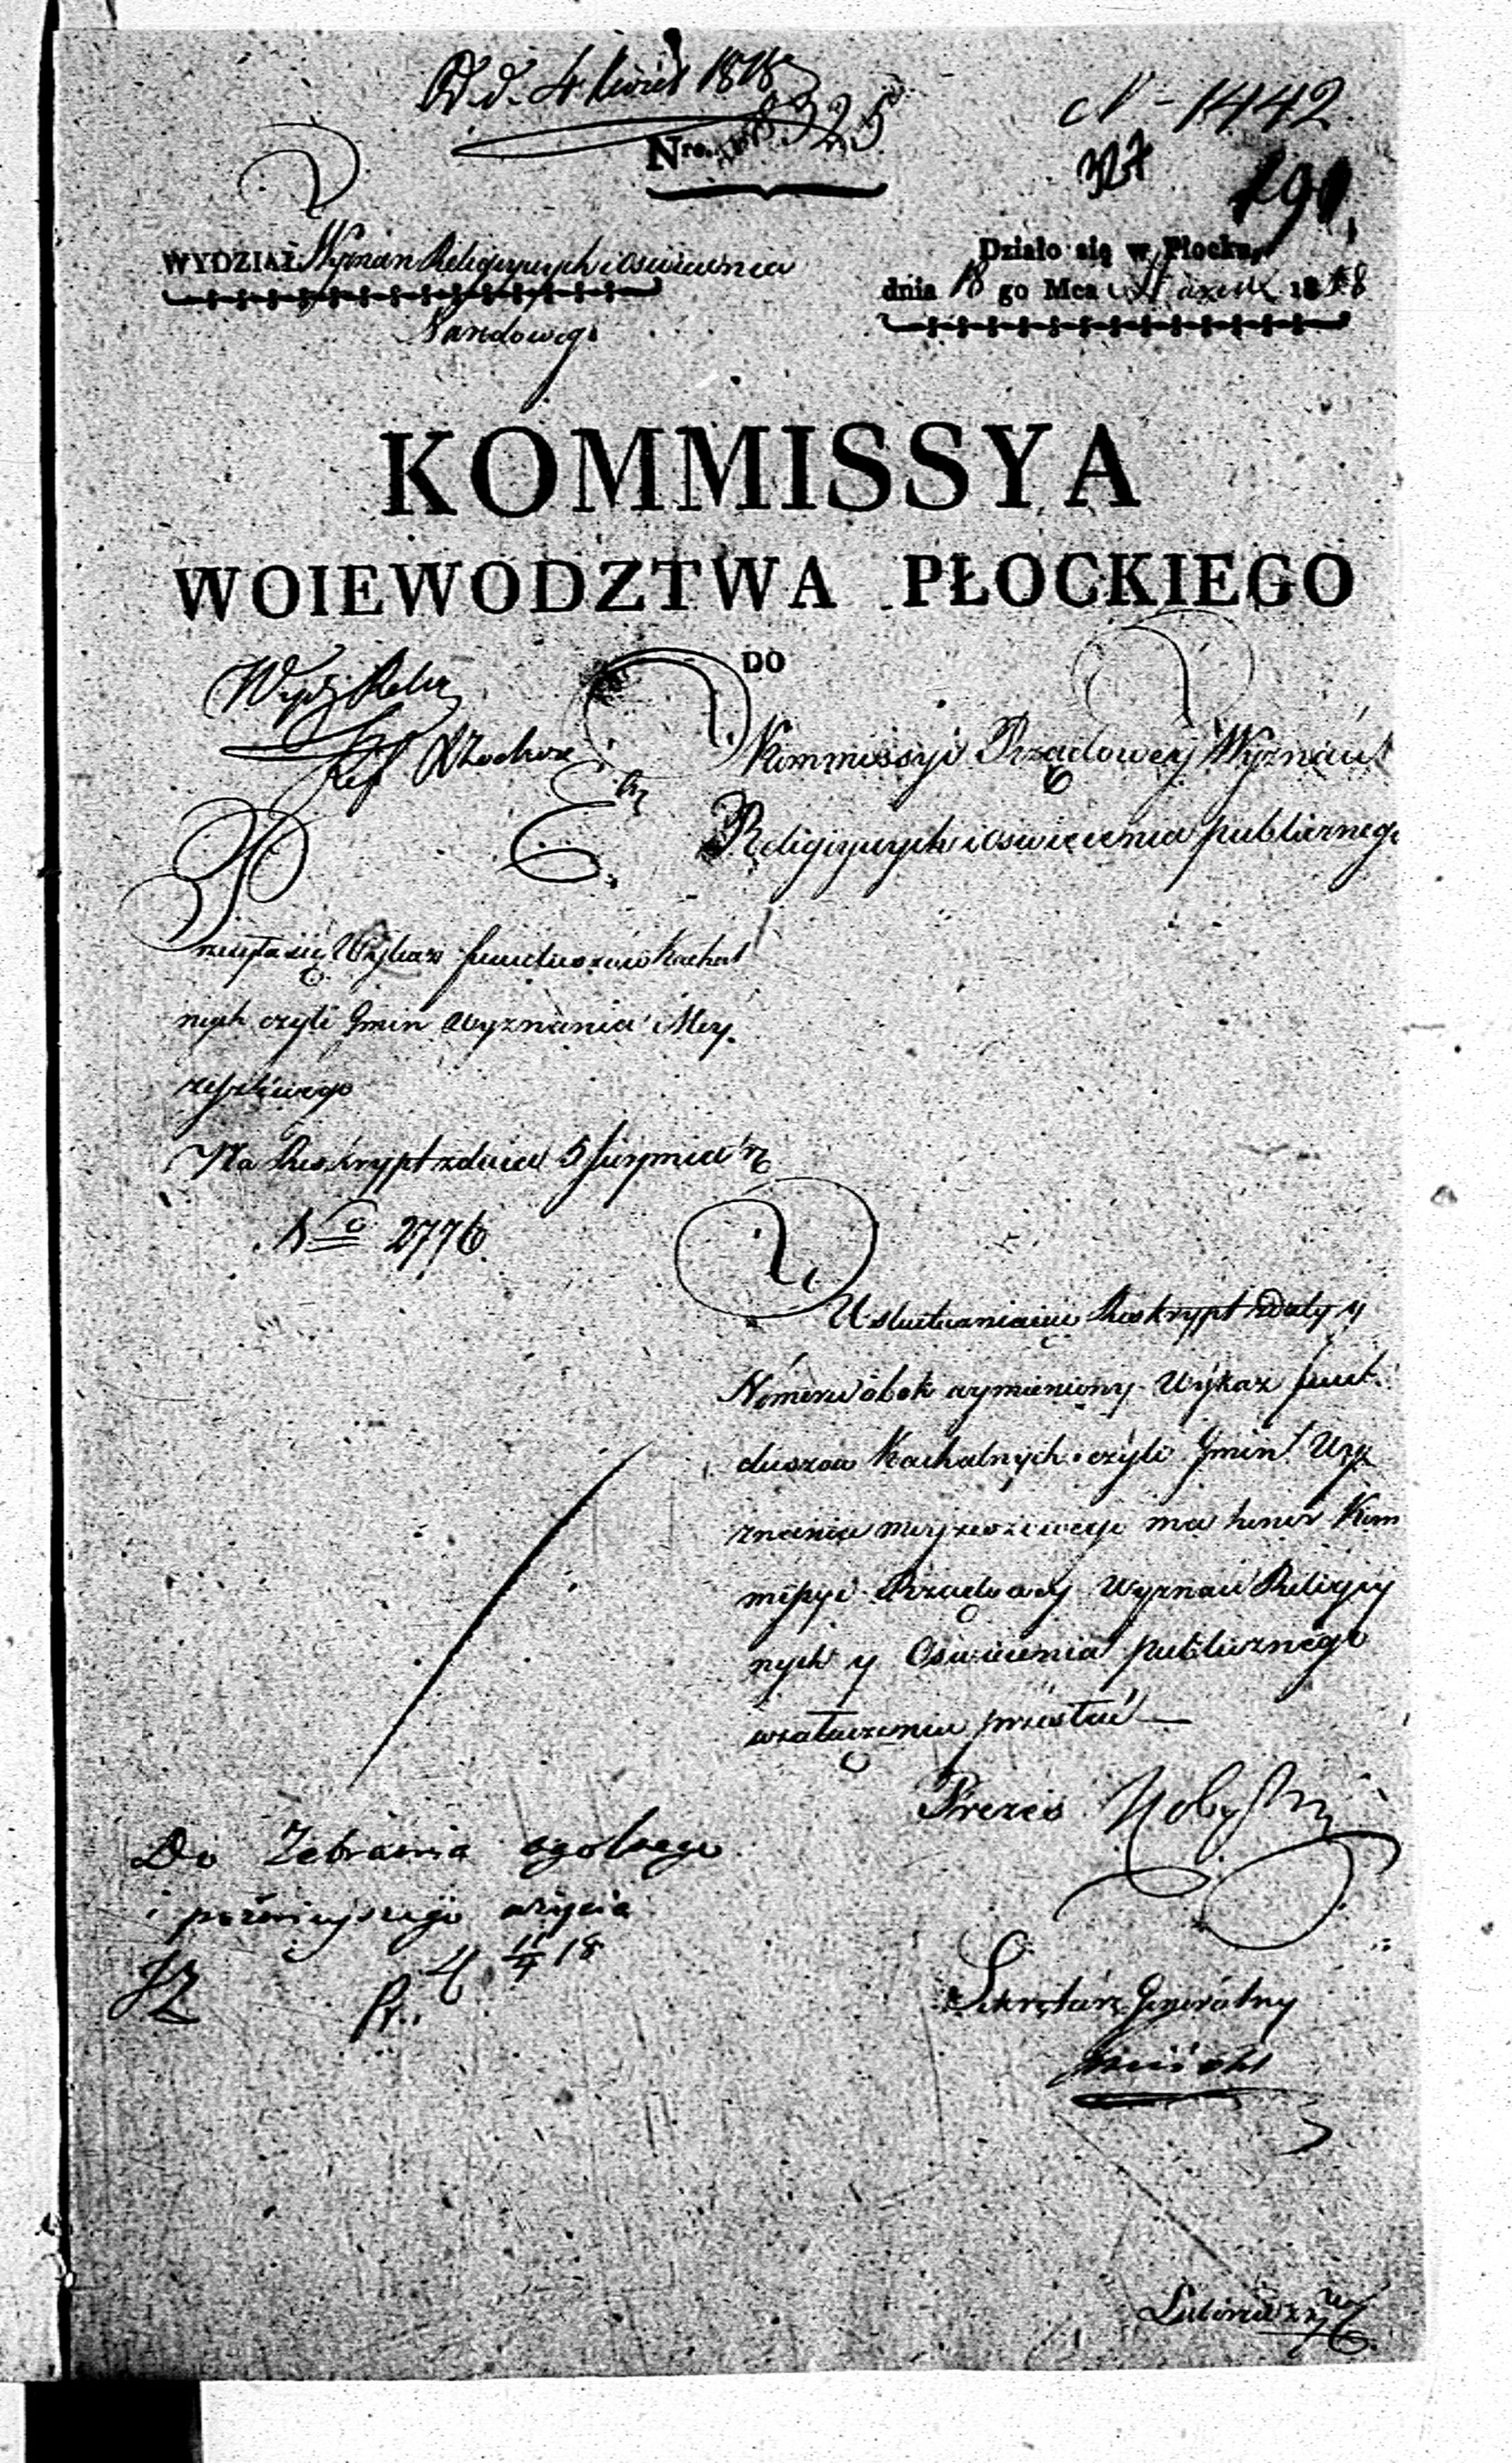 d. 4 Kwiet 1818
Nro. 8325
N – 1442
327
191
WYDZIAŁ Wyznan Religiynych i oswiecenia
Narodowego
Działo się w Płocku,
dnia 18 go Mca Marca 1818
KOMMISSYA
WOIEWODZTWA PŁOCKIEGO
DO
Wydz Relig
Ref
Kommissyi Rządowey Wyznań
Religiynych i oswięcenia publicznego
Przesyła się Wykaz funduszów Kachal
nych czyli Gmin wyznania Moy
zeszowego
Na Reskrypt z dnia 5 Sierpnia
No 2776
Uskuteczniaiąc Reskrypt z Daty y
Numeru obok wymieniony Wykaz fun
duszow Kachalnych czyli Gmin Wy
znania moyzeszowego ma honor Kom
missyi Rządowey Wyznań Religiy
nych y Oswiecenia publicznego
w załączeniu przesłać —
Prezes
Do Zebrania ogolnego
i poźnieyszego użycia
11/4 18
Sekretarz Generalny